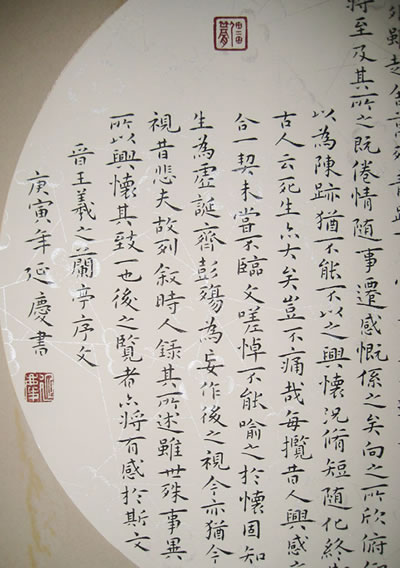 雖趣舍萬殊靜躁
將至及其所之既倦情隨事遷感慨係之矣向之所欣俯仰
以為陳跡猶不能不以之興懷況脩短隨化終
古人云死生亦大矣豈不痛哉每攬昔人興感
合一契未嘗不臨文嗟悼不能喻之於懷固知
生為虛誕齊彭殤為妄作後之視今亦猶今
視昔悲夫故列敘時人錄其所述雖世殊事異
所以興懷其致一也後之覽者亦將有感於斯文
晉王羲之蘭亭序文
庚寅年延慶書